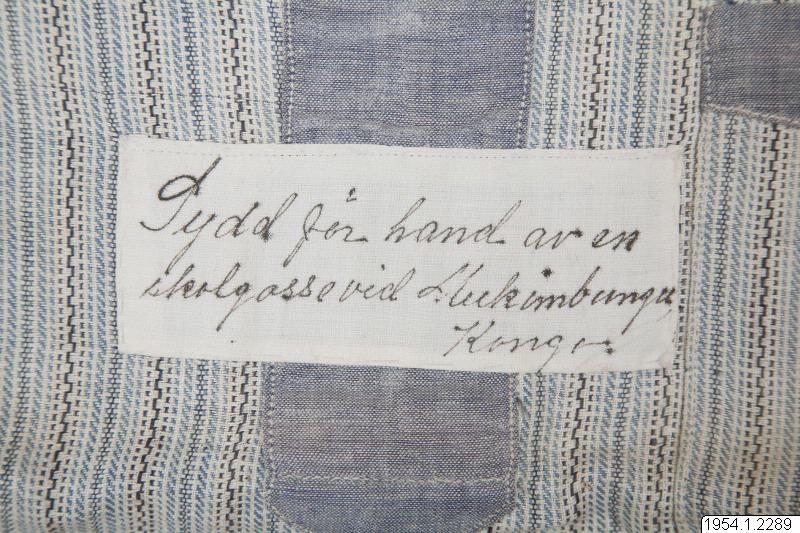 Sydd för hand av en
skolgosse vid Mukimbungu,
Kongo.
1954.1.2289